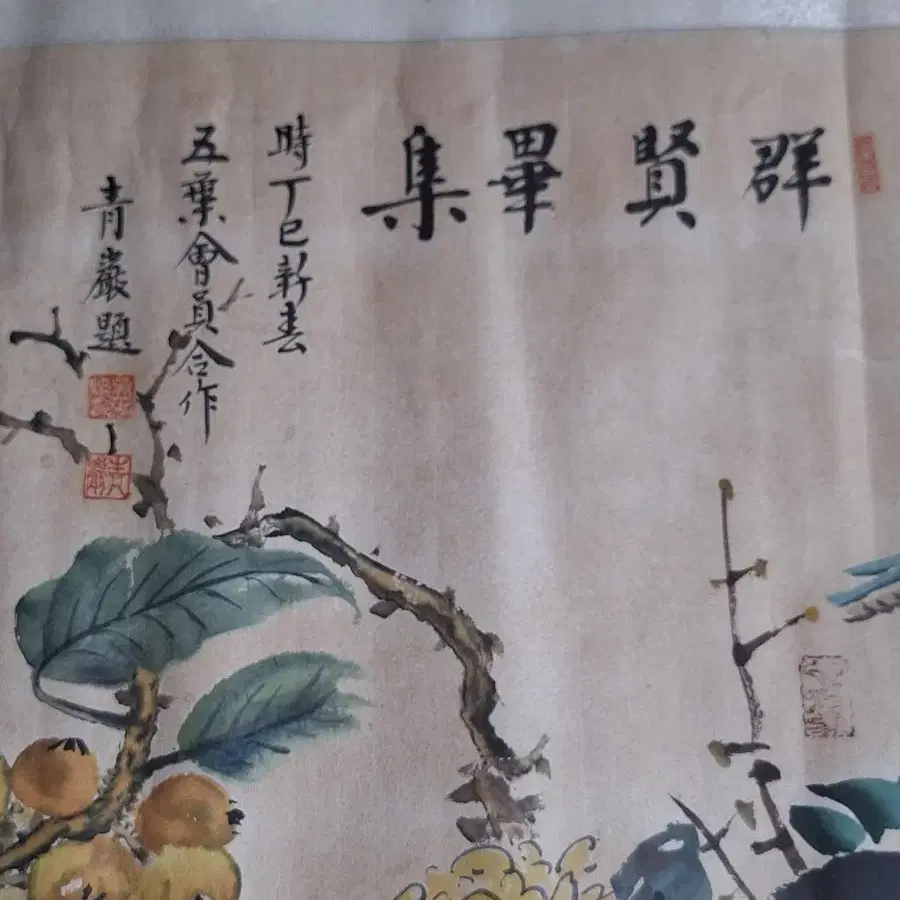 群賢畢集
時丁巳新春
五葉會員合作
青巖題